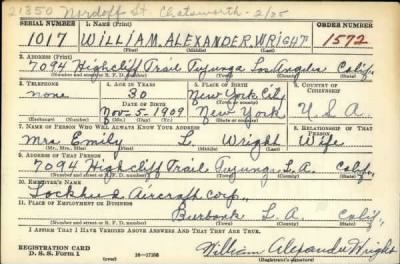 21350 Nordoff St Chatsworth - 2/25
SERIAL NUMBER 1. NAME (Print) ORDER NUMBER
1017 WILLIAM. ALEXANDER. WRIGHT 1572
(First) (Middle) (Last)
2. ADDRESS (Print)
7094 Highcliff Trail Tujunga Los Angeles Calif.
(Number and street or R. F. D. number) (Town) (County) (State)
3. TELEPHONE 4. AGE IN YEARS 5. PLACE OF BIRTH 6. COUNTRY OF CITIZENSHIP
none 30 New York City
DATE OF BIRTH (Town or county)
Nov. 5 - 1909 New York U.S.A
(Exchange) (No.) (Mo.) (Day) (Yr.) (State or country)
7. NAME OF PERSON WHO WILL ALWAYS KNOW YOUR ADDRESS 8. RELATIONSHIP OF THAT PERSON
Mrs. Emily L. Wright Wife
(Mr., Mrs., Miss) (First) (Middle) (Last)
9. ADDRESS OF THAT PERSON
7094 Highcliff Trail Tujunga L.A. Calif.
(Number and street or R. F. D. number) (Town) (County) (State)
10. EMPLOYER'S NAME
Lockheed Aircraft Corp.,
11. PLACE OF EMPLOYMENT OR BUSINESS
Burbank L.A. Calif.
(Number and street or R. F. D. number) (Town) (County) (State)
I AFFIRM THAT I HAVE VERIFIED ABOVE ANSWERS AND THAT THEY ARE TRUE.
REGISTRATION CARD
D. S. S. Form 1 (over) 16-17105 William Alexander Wright
(Registrant's signature)